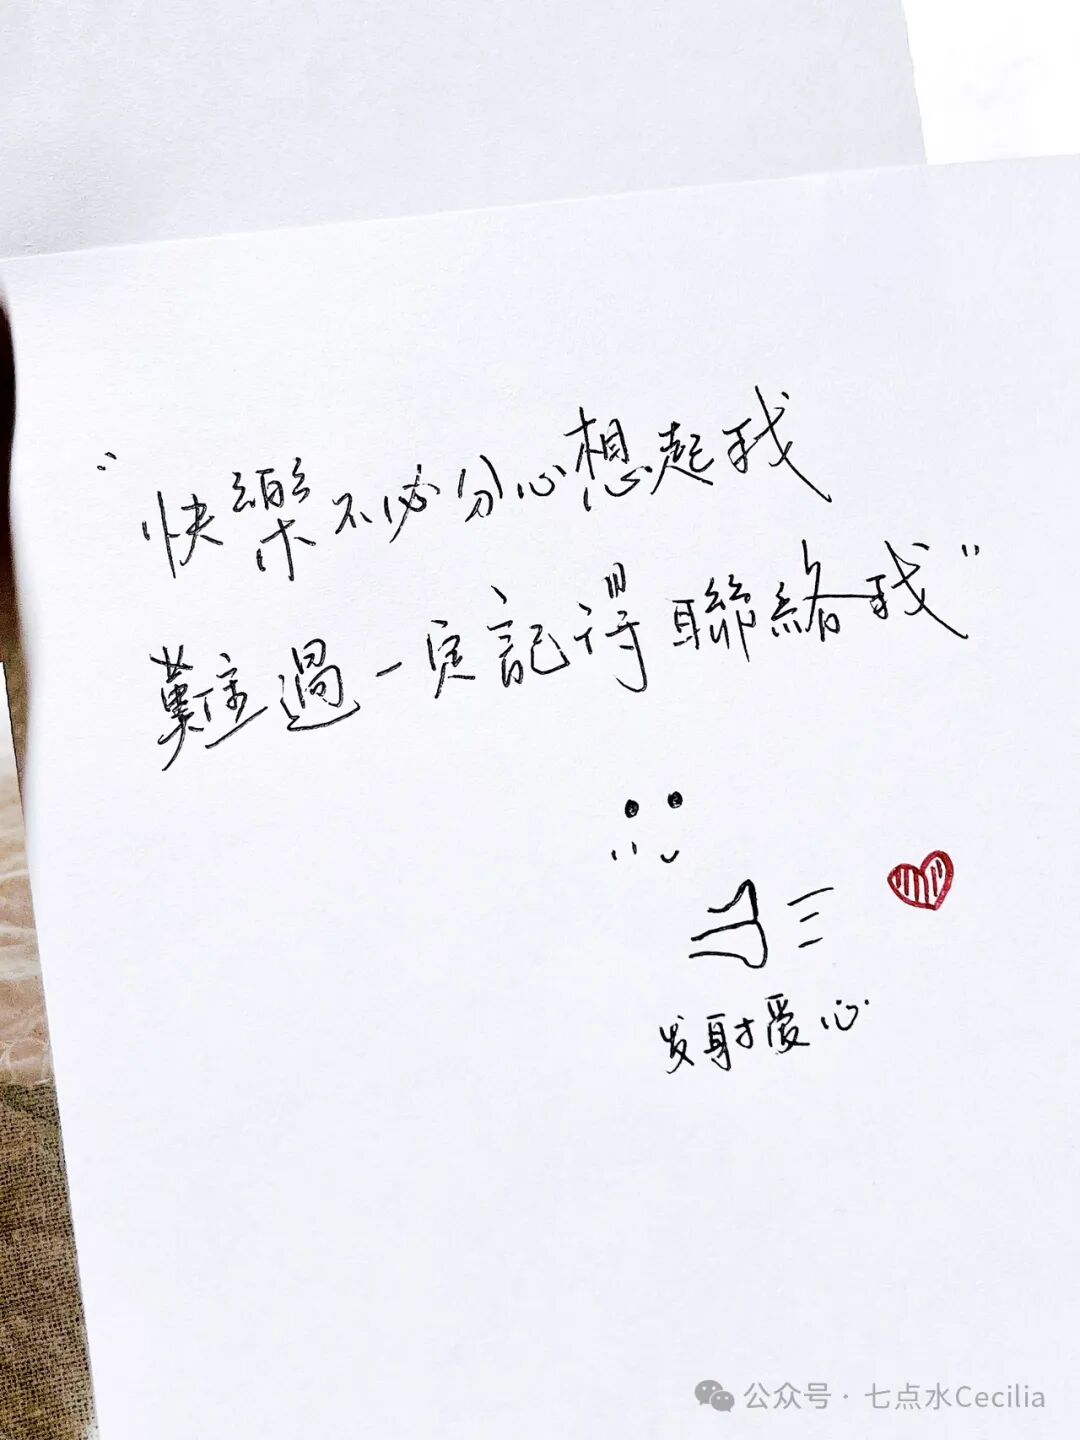 "快樂不必分心想起我
難過一定記得聯絡我"
发射爱心
公众号·七点水Cecilia